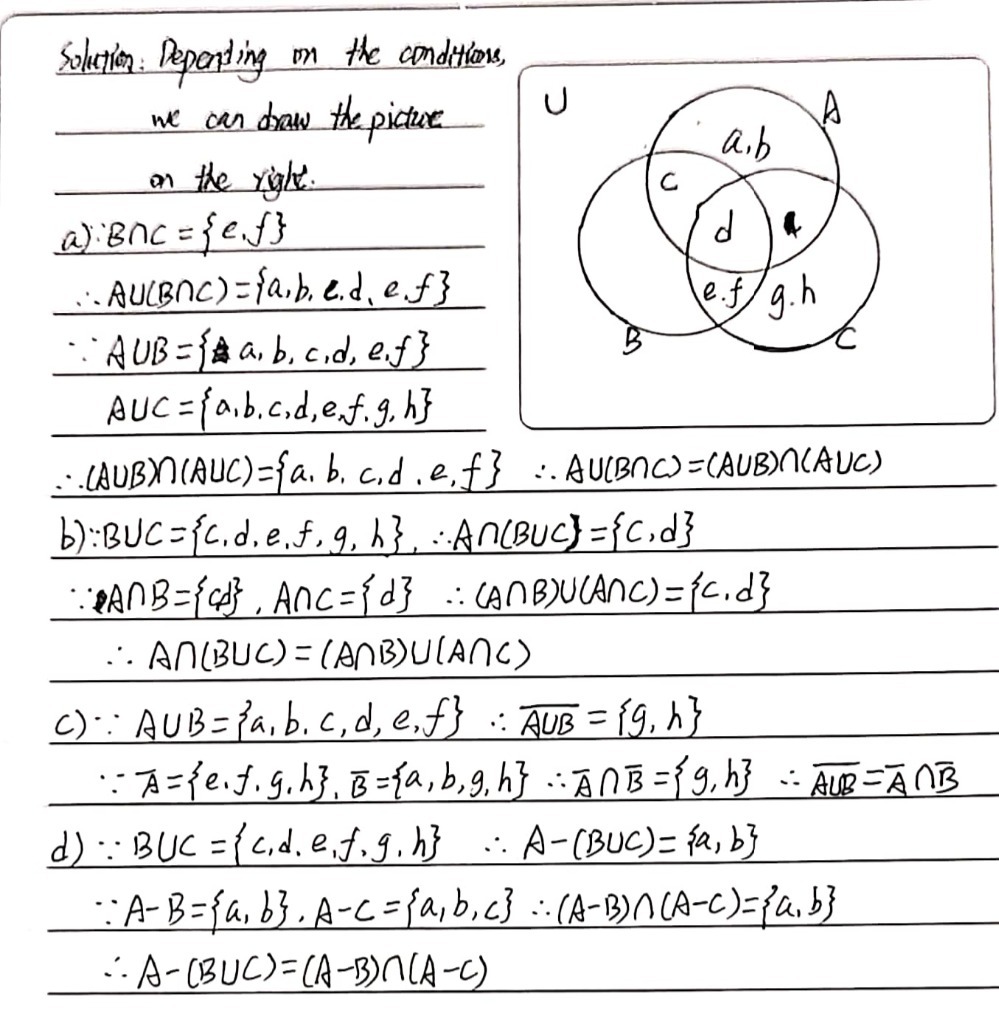 Solution: Depending on the conditions,
we can draw the picture
on the right.
U
A
a,b
c
d
e.f
g.h
B
C
a)∵B∩C={e.f}
∴AU(B∩C)={a,b,c.d,e.f}
∵AUB={a,b,c,d,e,f}
AUC={a,b.c,d,e,f.g,h}
∴(AUB)∩(AUC)={a.b.c,d.e,f} ∴AU(B∩C)=(AUB)∩(AUC)
b)∵BUC={c,d.e,f,g,h}, ∴A∩(BUC}={c,d}
∵A∩B={cd}, A∩C={d} ∴(A∩B)U(A∩C)={c.d}
∴A∩(BUC)=(A∩B)U(A∩C)
c)∵AUB={a,b.c,d,e,f} ∴A̅U̅B̅={g,h}
∵A̅={e.f.g.h}, B̅={a,b,g,h} ∴A̅∩B̅={g,h} ∴A̅U̅B̅=A̅∩B̅
d)∵BUC={c,d.e,f.g.h} ∴A-(BUC)={a,b}
∵A-B={a,b}, A-C={a,b,c} ∴(A-B)∩(A-C)={a,b}
∴A-(BUC)=(A-B)∩(A-C)